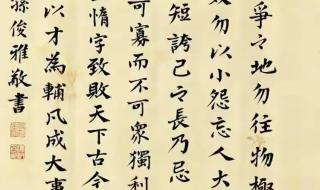 爭之地勿往物極
勿以小怨忘人大
短誇己之長乃忌
可寡而不可衆獨利
惰字致敗天下古今
以才為輔凡成大事
孫俊雅敬書